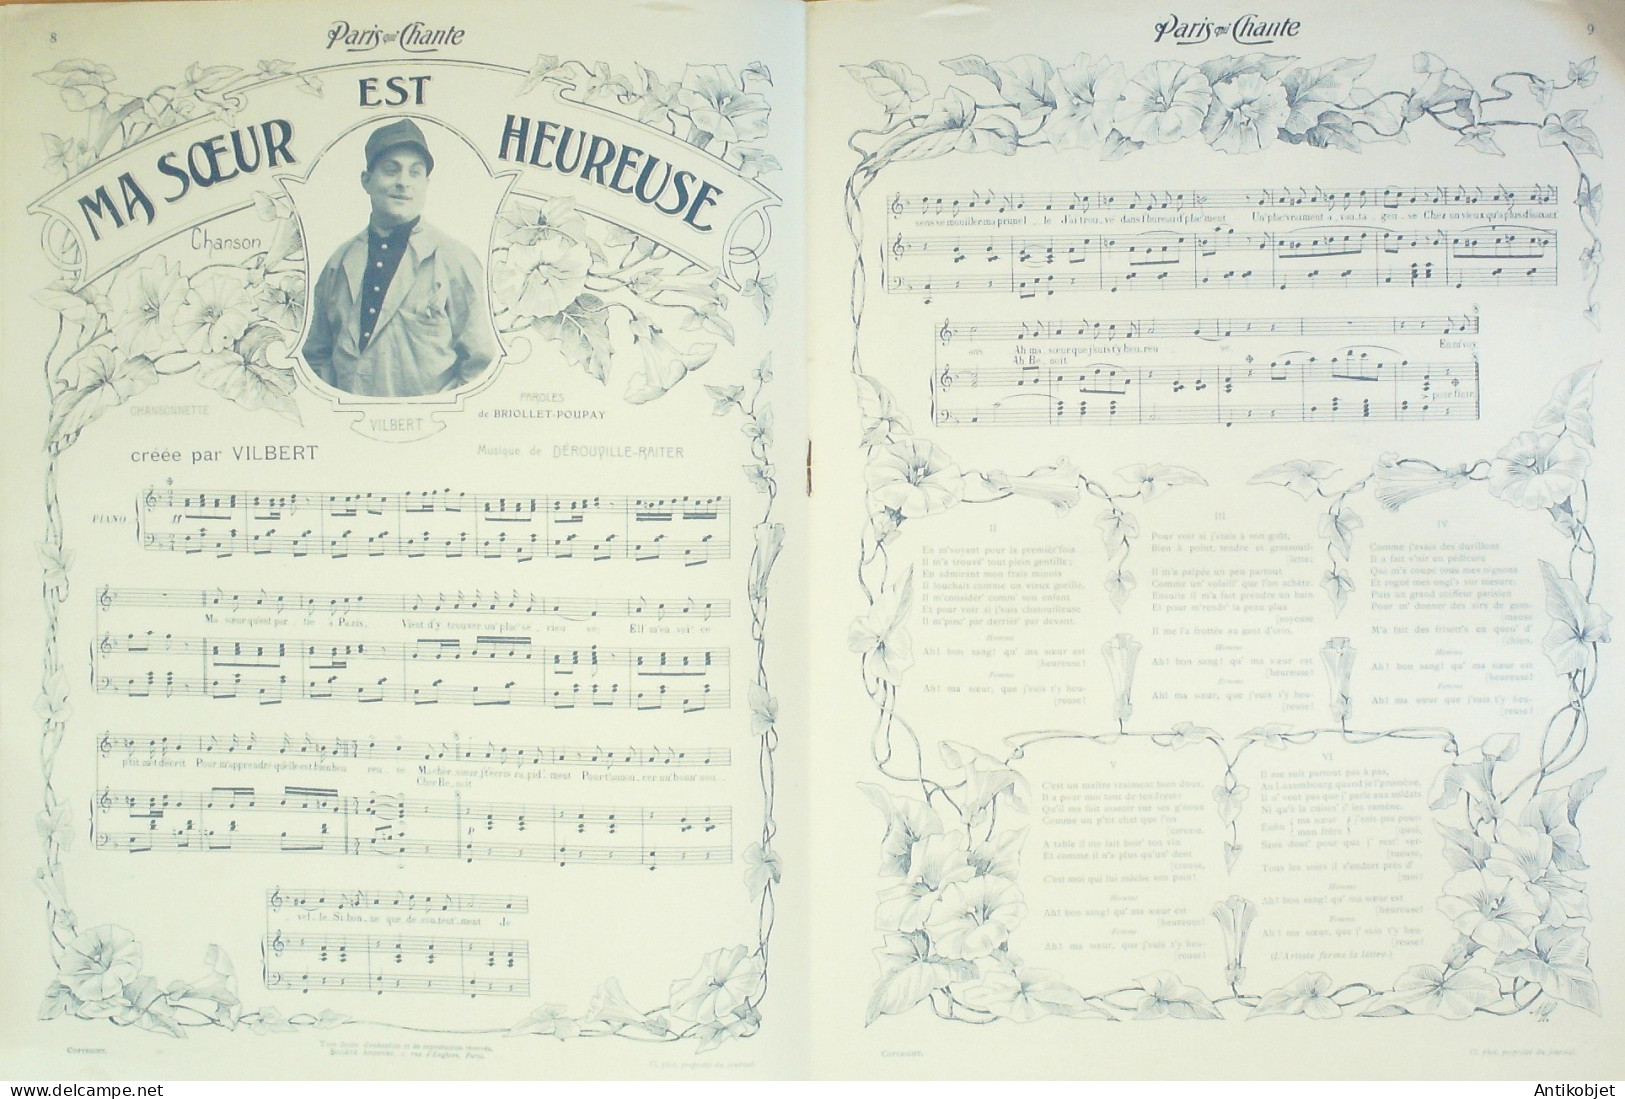 8
Paris qui Chante
MA SŒUR EST HEUREUSE
Chanson
CHANSONNETTE
VILBERT
PAROLES
de BRIOLLET-POUPAY
créée par VILBERT
Musique de DÉROUVILLE-RAITER
PIANO
ff
Ma sœur qu'est par _ tie à Paris, Vient d'y trouver un' plac' sé _ rieu _ se; Ell' m'en
p'tit mot d'écrit Pour m'apprendre qu'elle est bien heu _ reu _ se
Ma chèr' sœur, j't'écris ra _ pid' _ ment Pour t'annon _ cer un' bonn' nou _
Cher Be _ noit
p
vel _ le. Si bon _ ne que de con _ tent' _ ment Je
COPYRIGHT.
Cl. phot. propriété du journal.
Paris qui Chante
9
sens se mouiller ma prunel _ le J'ai trou _ vé dans l'bureau d'plac'ment Un' plac' vraiment a _ van _ ta _ geu _ se Chez un vieux qu'a plus d'soixant'
ans Ah ma sœur que j'suis t'y heu _ reu _ se En m'voy.
Ah Be _ noit
pour finir.
II
En m'voyant pour la premièr' fois
Il m'a trouvé' tout plein gentille;
En admirant mon frais minois
Il m'considér' comm' son enfant
Et pour voir si j'suis chatouilleuse
Il m'pinc' par derrièr' par devant.
Homme
Ah! bon sang! qu' ma sœur est
[heureuse!
Femme
Ah! ma sœur, que j'suis t'y heu-
[reuse!
III
Pour voir si j'étais à son goût,
Bien à point, tendre et grassouil-
[lette;
Il m'a palpée un peu partout
Comme un' volaill' que l'on achète.
Ensuite il m'a fait prendre un bain
Et pour m'rendr' la peau plus
[soyeuse
Il me l'a frottée au gant d'crin.
Homme
Ah! bon sang! qu' ma sœur est
[heureuse!
Femme
Ah! ma sœur, que j'suis t'y heu-
[reuse!
IV
Comme j'avais des durillons
Il a fait v'nir un pédicure
Qui m'a coupé tous mes oignons
Et rogné mes ongl's sur mesure.
Puis un grand coiffeur parisien
Pour m' donner des airs de gom-
[meuse
M'a fait des frisett's en queu' d'
[chien.
Homme
Ah! bon sang! qu' ma sœur est
[heureuse!
Femme
Ah! ma sœur que j'suis t'y heu-
[reuse!
V
C'est un maître vraiment bien doux,
Il a pour moi tant de tendresse
Qu'il me fait asseoir sur ses g'noux
Comme un p'tit chat que l'on
[caresse.
A table il me fait boir' son vin
Et comme il n'a plus qu'un' dent
[creuse,
C'est moi qui lui mâche son pain!
Homme
Ah! bon sang! qu' ma sœur est
[heureuse!
Femme
Ah! ma sœur, que j'suis t'y heu-
[reuse!
VI
Il me suit partout pas à pas,
Au Luxembourg quand je l'promène.
Il n' veut pas que j' parle aux soldats
Ni qu'à la caisse j' les ramène.
Enfin { ma sœur } j'suis pas pour-
{ mon frère } [quoi,
Sans dout' pour que j' rest' ver-
[tueuse,
Tous les soirs il s'endort près d'
[moi!
Homme
Ah! bon sang! qu' ma sœur est
[heureuse!
Femme
Ah! ma sœur, que j' suis t'y heu-
[reuse!
(L'Artiste ferme la lettre.)
COPYRIGHT.
Cl. phot. propriété du journal.
Antikobjet